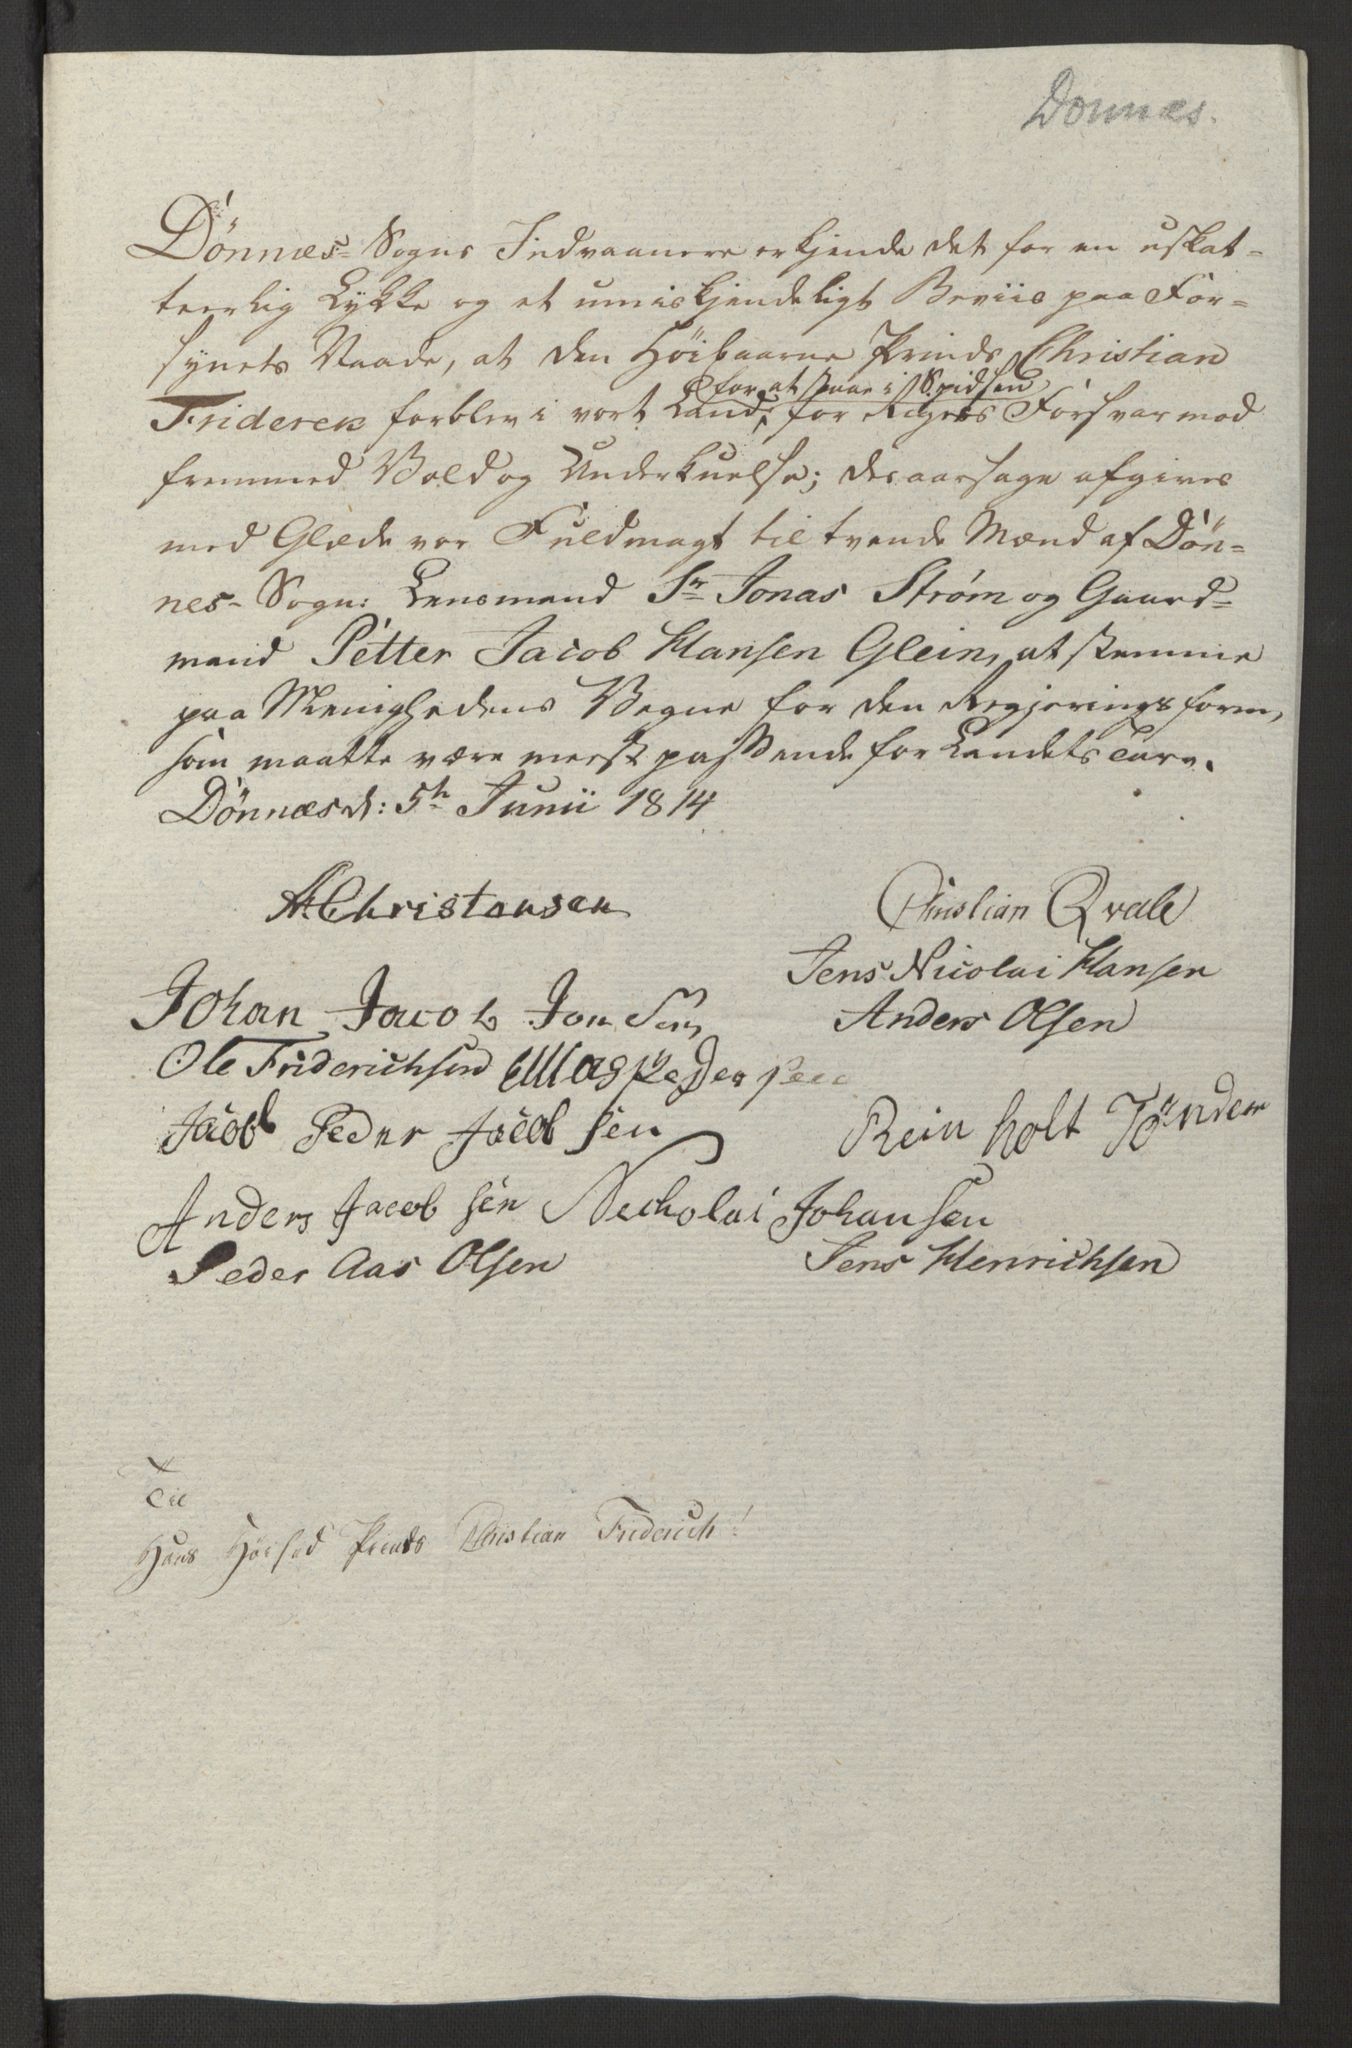 Dønnæs.
Dönnæs- Sogns Indvaanere erkjende det for en uskat-
teerlig Lykke og et umiskjendeligt Beviis paa For-
synets Naade, at den Höibaarne Prinds Christian
for at staae i Spidsen
Friderek forblev i vort Land, for Rigets Forsvar mod
fremmed Vold og Underkuelse; desaarsage afgives
med Glæde vor Fuldmagt til tvende Mænd af Dön-
nes- Sogn: Lensmand Sr Jonas Strøm og Gaard-
mand Petter Jacob Hansen Glein, at stemme
paa Menighedens Vegne for den Regjeringsform,
som maatte være meest passende for Landets Tarv.
Dönnæs d: 5th Junii 1814
Christensen
Christian Qvale
Jens Nicolai Hansen
Johan Jacob Jonsen
Anders Olsen
Ole Friderichsen Elias Pedersen
Jacob Peder Jacobsen
Reinholt Tönder
Anders Jacobsen Nicholai Johansen
Peder Aas Olsen
Jens Henrichsen
Til
Hans Höihed Prinds Christian Friderich!